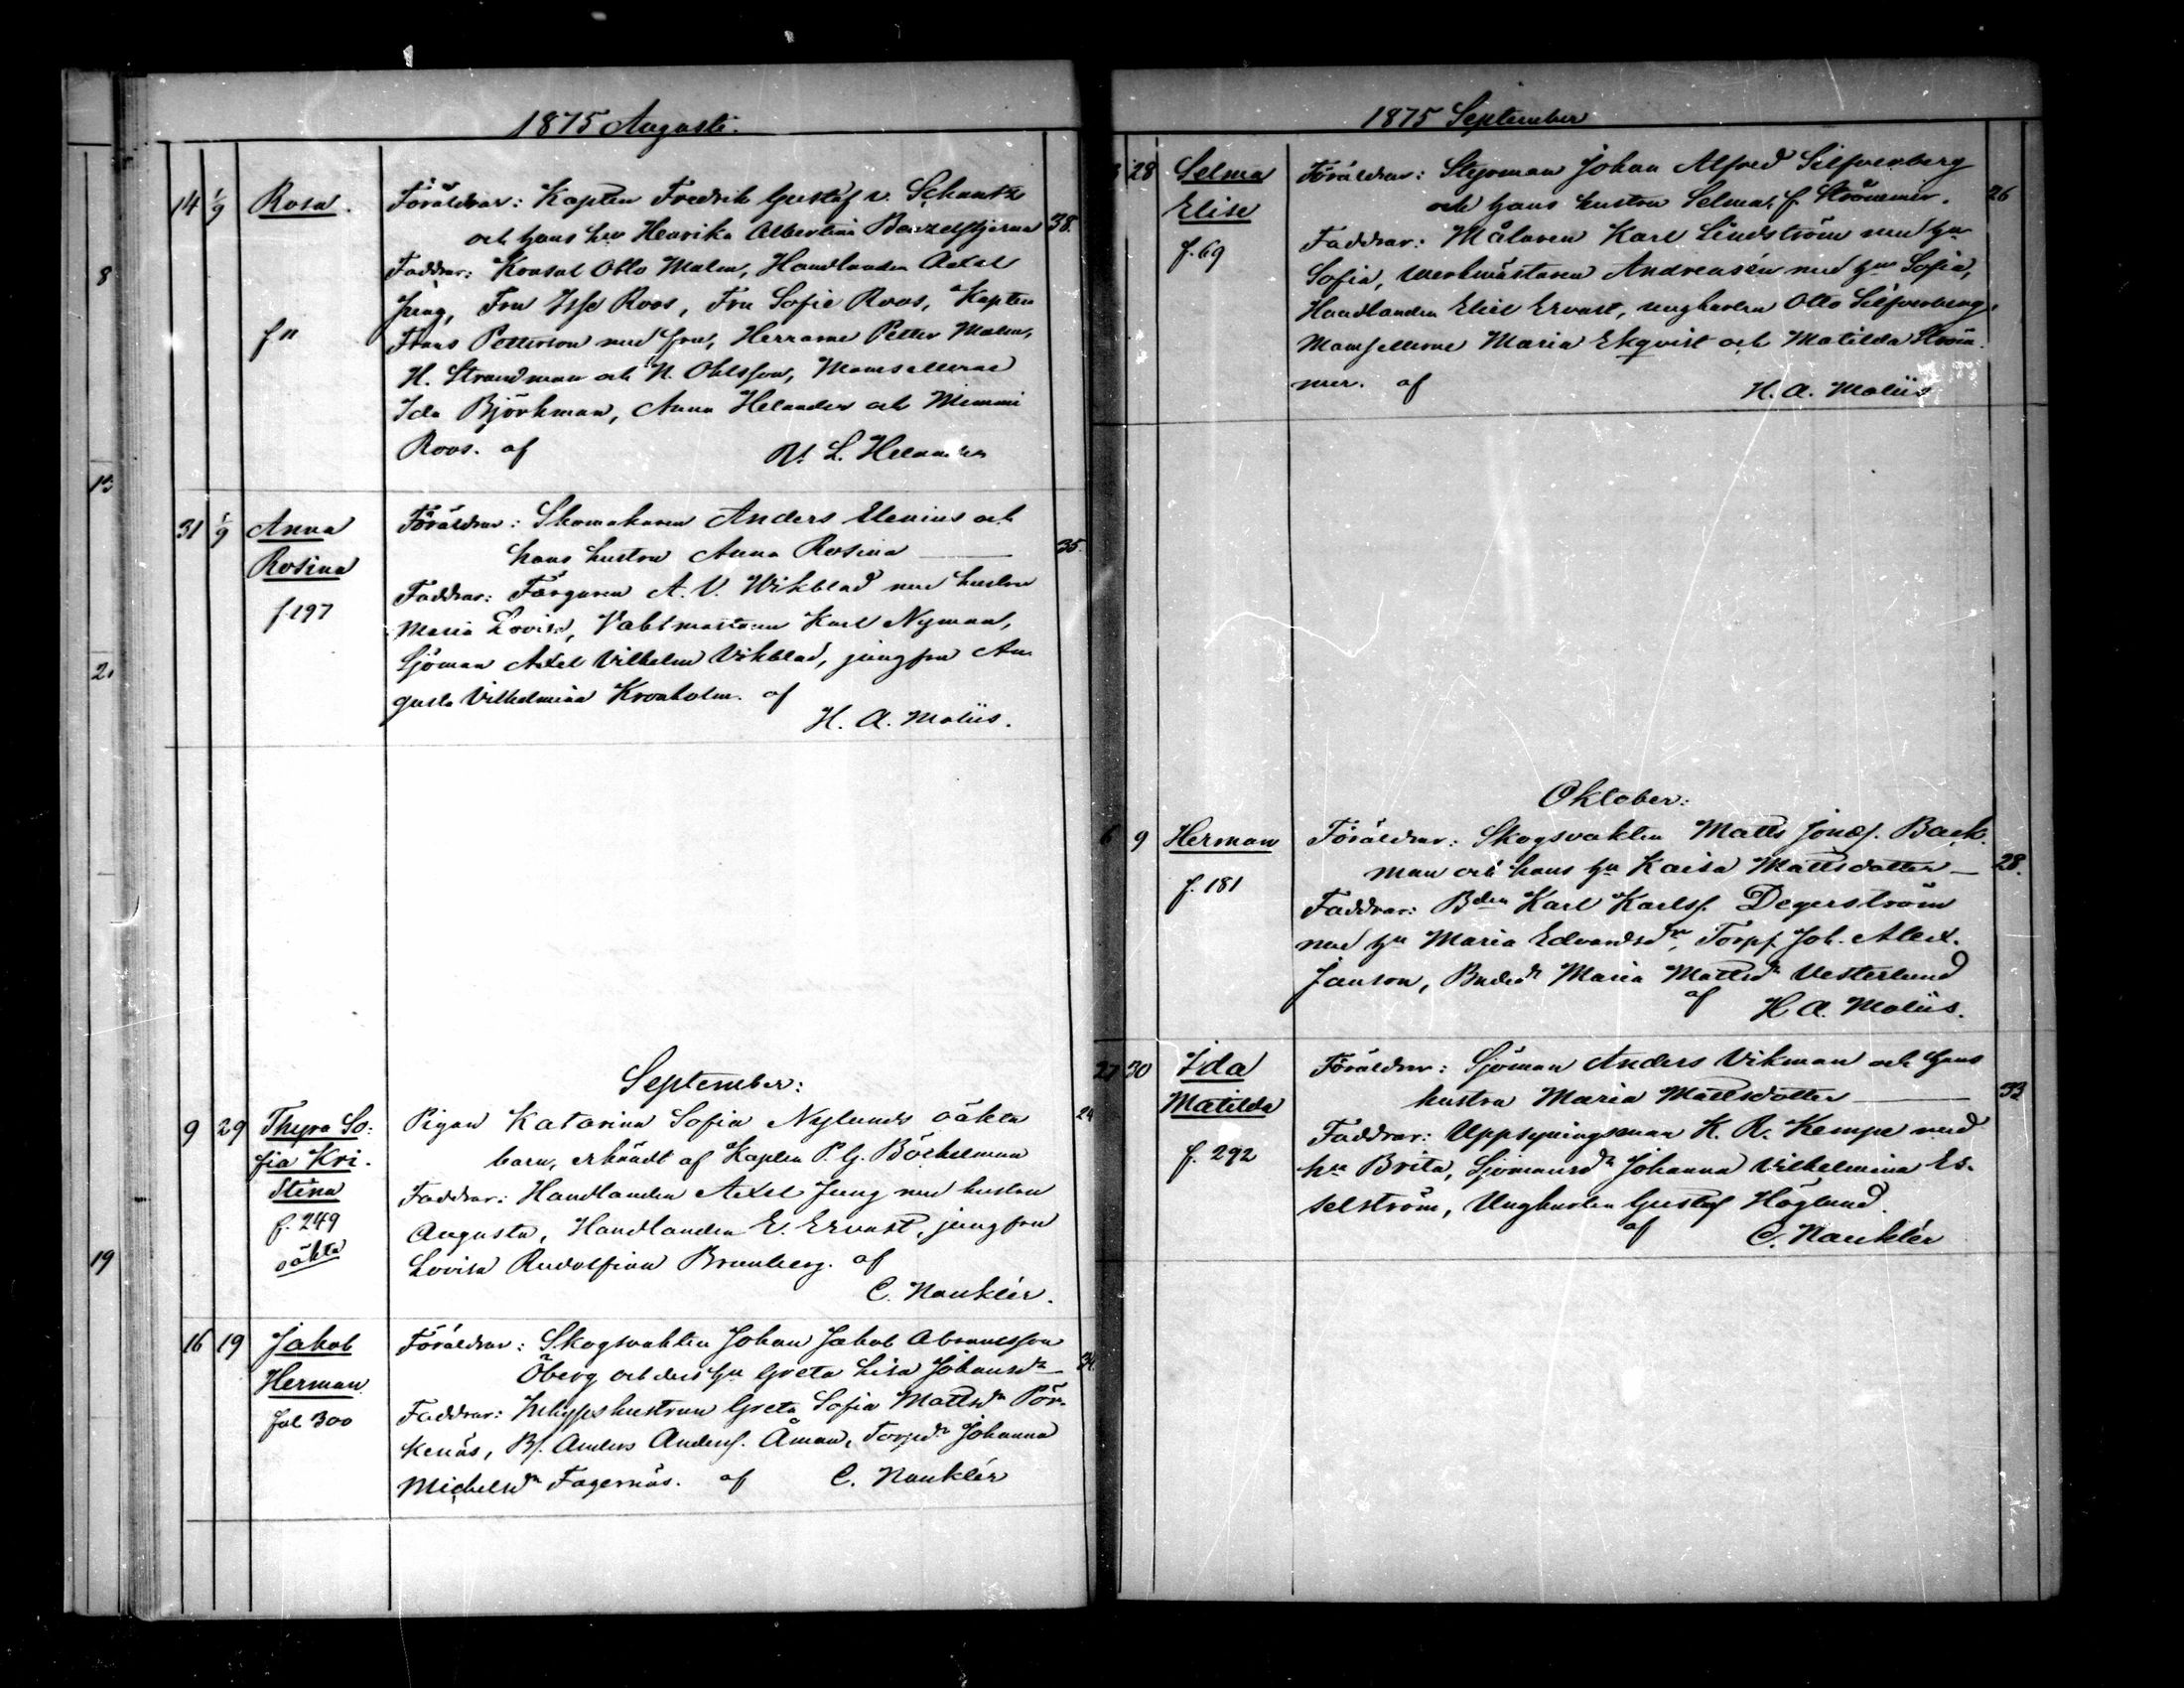 1875 Augusti.
14 1/9 Rosa. Föräldrar: Kapten Fredrik Gustaf v. Schantz
och hans hu Henrika Albertina Benzelstjerna 38.
Faddrar: Konsul Otto Malm, Handlanden Axel
Jung, Fru Roos, Fru Sofie Roos, Kapten
f" Frans Petterson med fru, Herrarne Petter Malm,
H. Strandman och N. Ohlsson, Mamsellerne
Ida Björkman, Anna Helander och Mimmi
Roos. af L. Helander
31 1/9 Anna Föräldrar: Skomakaren Anders Elenius och
Rosina hans hustru Anna Rosina 35.
f. 197 Faddrar: Färgaren A. V. Wikblad med hustru
Maria Lovisa, Vaktmästaren Karl Nyman,
Sjöman Axel Vilhelm Vikblad, jungfru Au-
gusta Vilhelmina Kronholm. af
H. A. Moliis.
September:
9 29 Thyra So- Pigan Katarina Sofia Nylunds oäkta 24
fia Kri- barn, erkändt af Kapten P. G. Böckelman
stina Faddrar: Handlanden Axel Jung med hustru
f. 249 Augusta, Handlanden E. Ervast, jungfru
oäkta Lovisa Rudolfina Brunberg. af
C. Nauklér.
16 19 Jakob Föräldrar: Skogsvakten Johan Jakob Abramsson
Herman Öberg och dess hu Greta Lisa Johansdr 34.
fol 300 Faddrar: Inhyseshustrun Greta Sofia Mattsdr Pör-
kenäs, Bs. Anders Anders. Åman, Torpdr Johanna
Michelsdr Fagernäs. af C. Nauklér
1875 September
28 Selma Föräldrar: Styrman Johan Alfred Silfverberg
Elise och hans hustru Selma, f. Strömmer. 26
f. 69 Faddrar: Målaren Karl Lindström med hu
Sofia, Werkmästaren Andreasén med hu Sofia,
Handlanden Eliel Ervast, ungkarlen Otto Silfverberg,
Mamsellerne Maria Ekqvist och Matilda Ström-
mer. af H. A. Moliis
Oktober:
6 9 Herman Föräldrar: Skogsvakten Matts Jonas. Back-
man och hans hu Kaisa Mattsdotter 28.
f. 181 Faddrar: Bden Karl Karls. Degerström
med hu Maria Edvardsdr, Torp. Joh. Alex.
Janson, Bndedr Maria Mattsdr Vesterlund
af H. A. Moliis.
27 30 Ida Föräldrar: Sjöman Anders Vikman och hans
Matilda hustru Maria Mattsdotter 33
f. 292 Faddrar: Uppsyningsman K. R. Kempe med
hu Brita, Sjömansdr Johanna Vilhelmina Es-
selström, Ungkarlen Gustaf Höglund.
af C. Nauklér
8
13
2
19